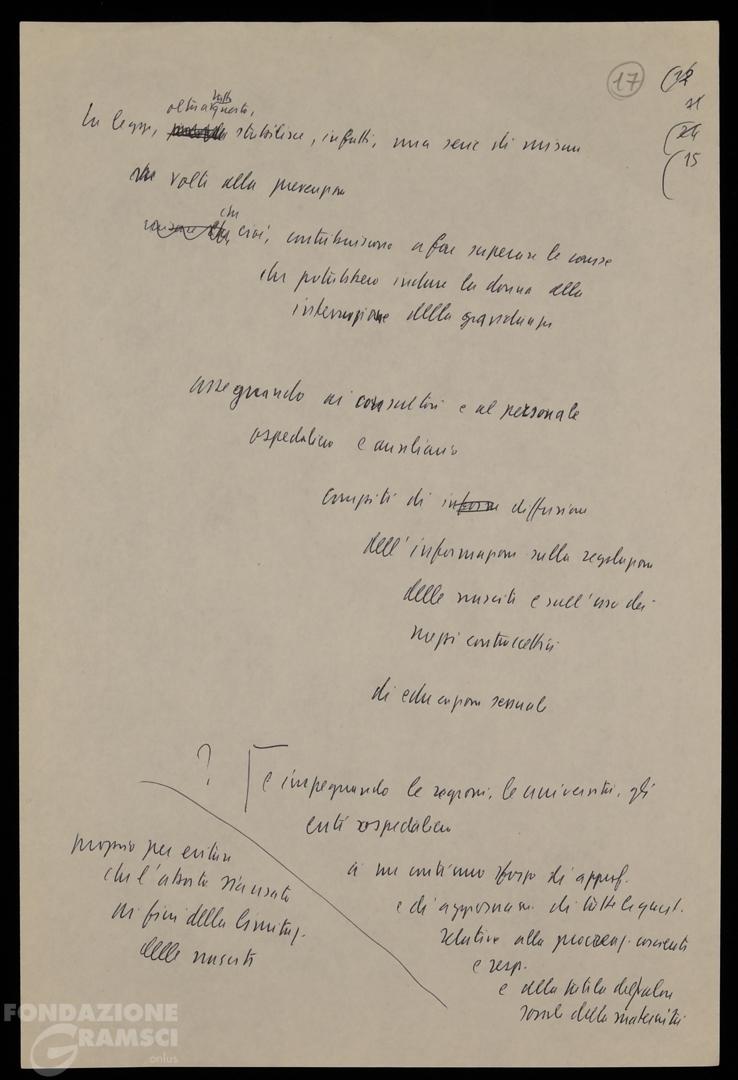 17
15
tutto
oltre a questo,
La legge, stabilisce, infatti, una serie di misure
volte alla prevenzione
che
cioè, contribuiscono a far superare le cause
che potrebbero indurre la donna alla
interruzione della gravidanza
assegnando ai consultori e al personale
ospedaliero e ausiliario
compiti di inform diffusione
dell'informazione sulla regolazione
delle nascite e sull'uso dei
mezzi contraccettivi
di educazione sessuale
?
e impegnando le regioni, le università, gli
enti ospedalieri
a un continuo sforzo di approf.
e di aggiornam. di tutte le quest.
relative alla procreaz. cosciente
e resp.
e della tutela del valore
sociale della maternità
proprio per evitare
che l'aborto sia usato
ai fini della limitaz.
delle nascite
FONDAZIONE
GRAMSCI
onlus